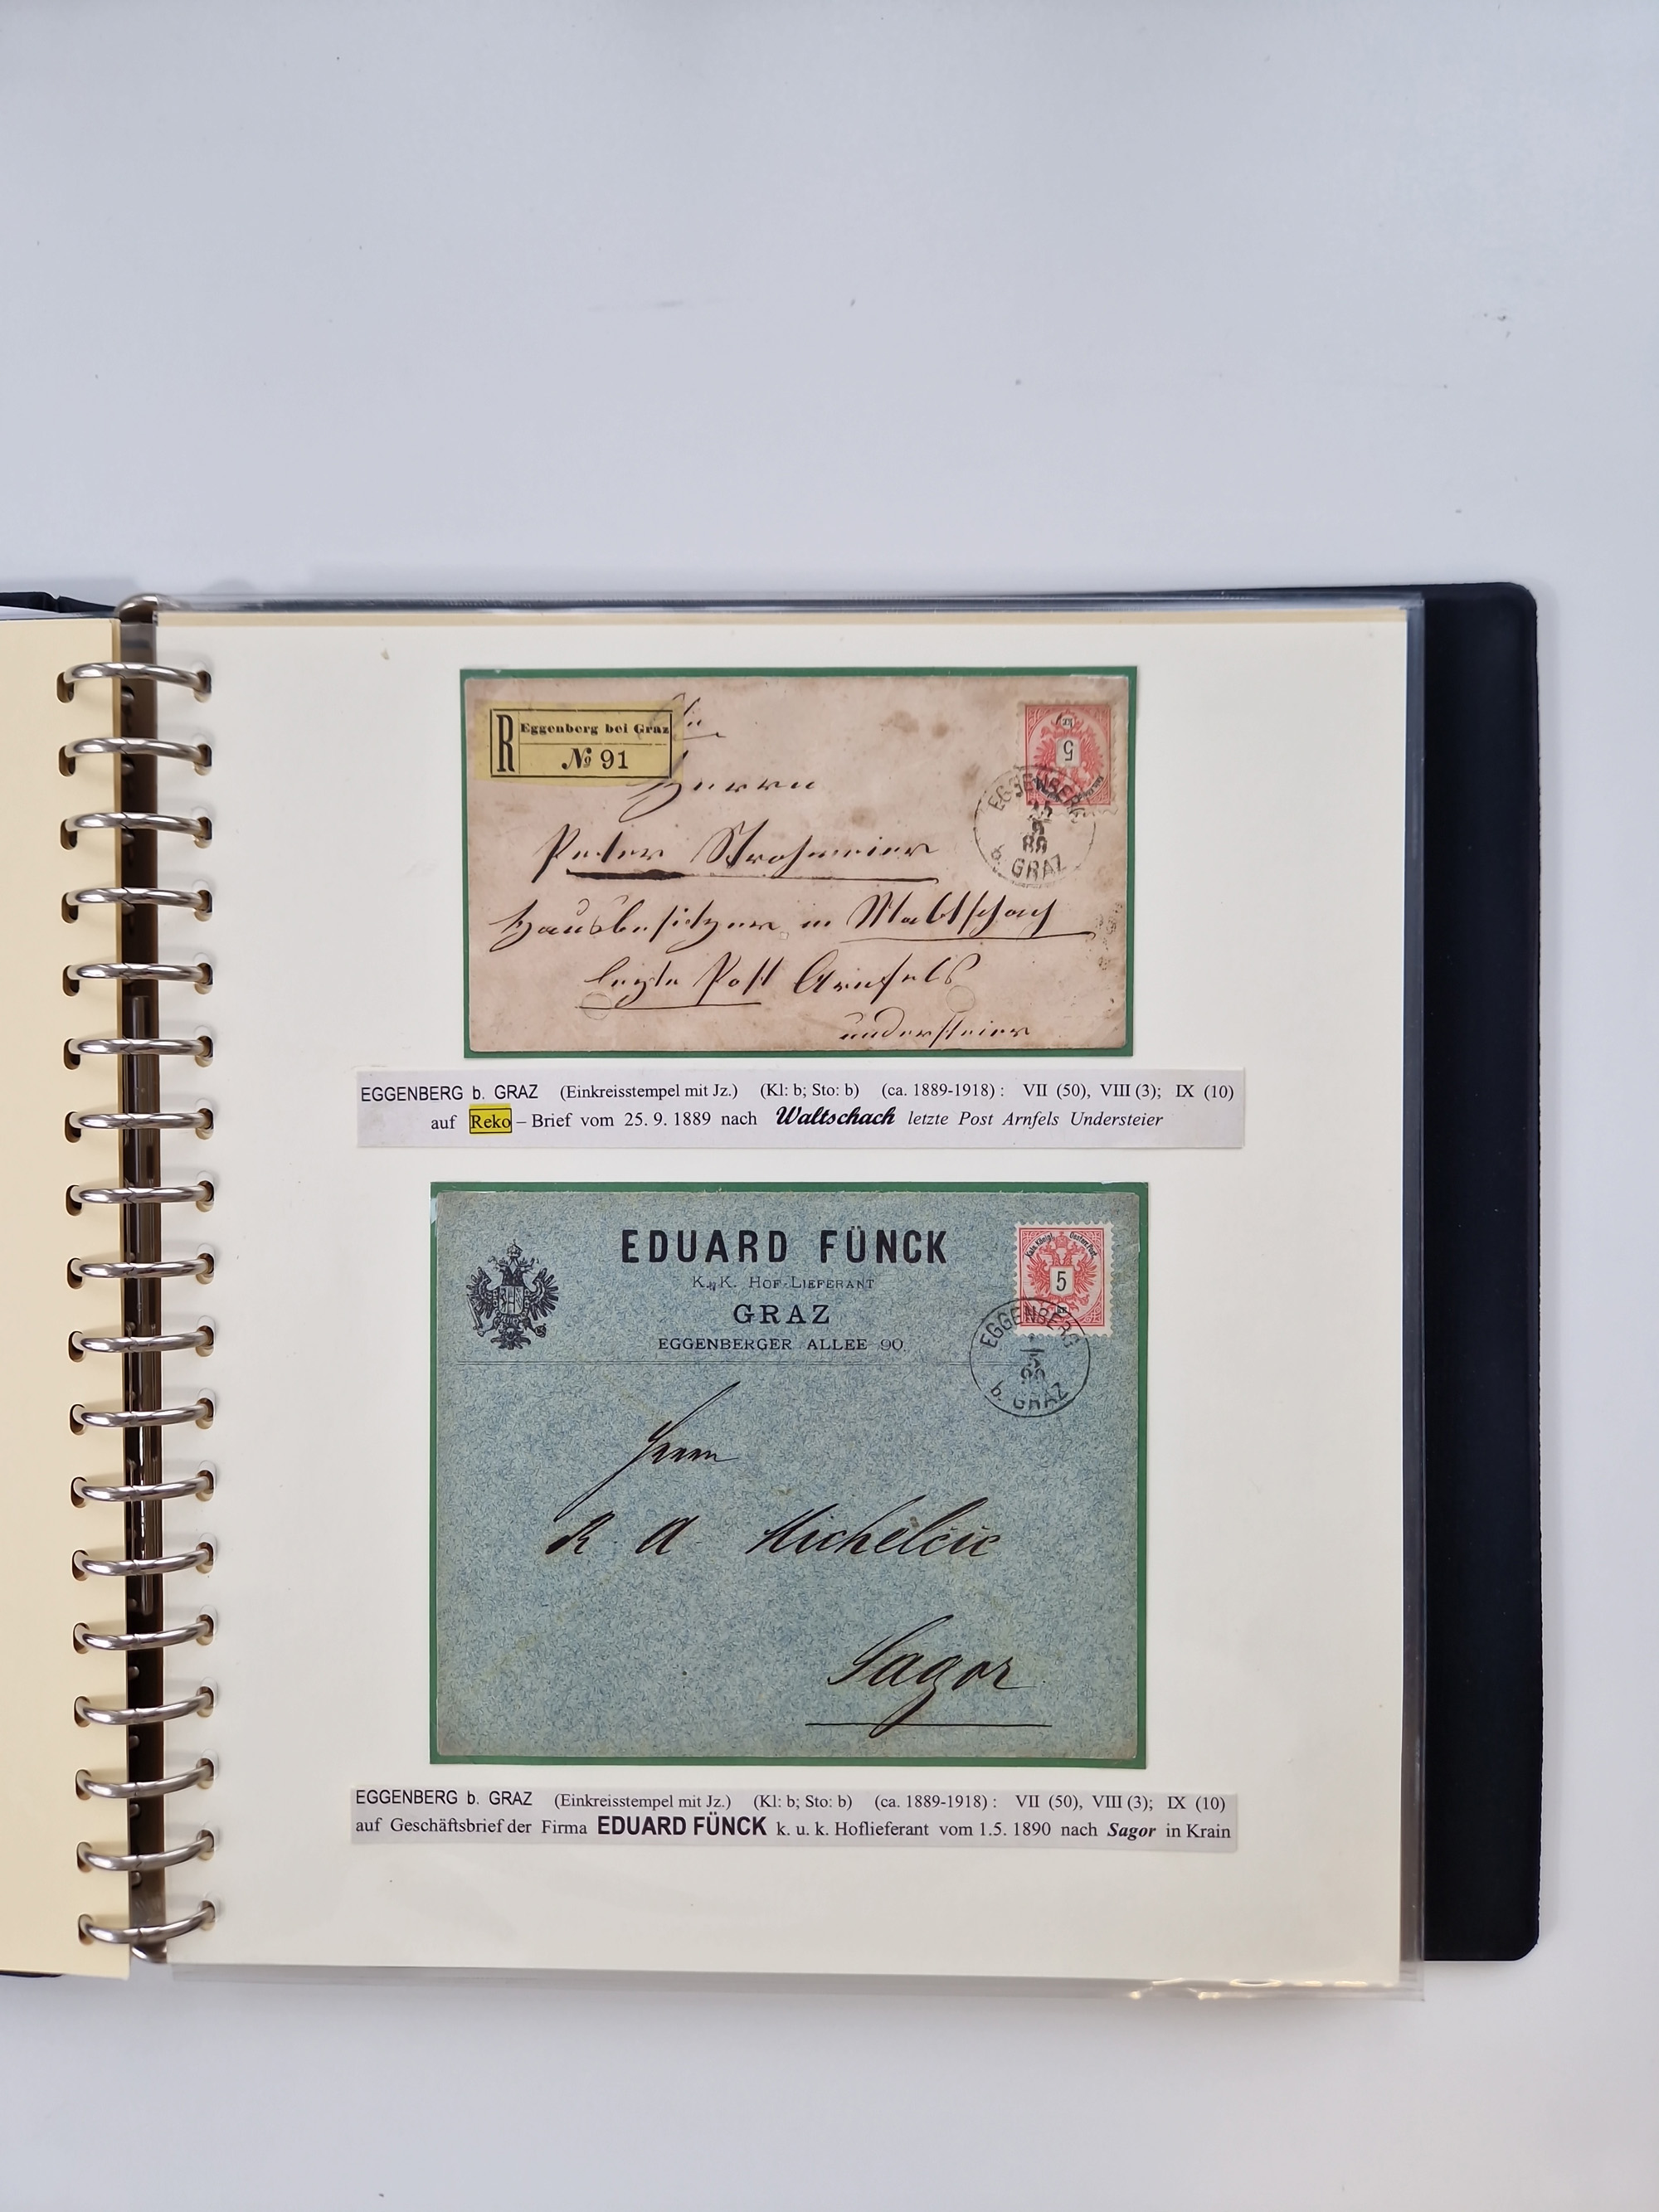 R Eggenberg bei Graz
№ 91
An
Herrn
Peter Strohmeier
Hausbesitzer in Waltschach
letzte Post Arnfels
understeier
5
EGGENBERG
9
89
b. GRAZ
EGGENBERG b. GRAZ (Einkreisstempel mit Jz.) (Kl: b; Sto: b) (ca. 1889-1918) : VII (50), VIII (3); IX (10)
auf Reko – Brief vom 25. 9. 1889 nach Waltschach letzte Post Arnfels Understeier
EDUARD FÜNCK
K.u.K. HOF-LIEFERANT
GRAZ
EGGENBERGER ALLEE 90.
5
EGGENBERG
90
b. GRAZ
Herrn
R. A. Michelcic
Sagor
EGGENBERG b. GRAZ (Einkreisstempel mit Jz.) (Kl: b; Sto: b) (ca. 1889-1918) : VII (50), VIII (3); IX (10)
auf Geschäftsbrief der Firma EDUARD FÜNCK k. u. k. Hoflieferant vom 1.5. 1890 nach Sagor in Krain